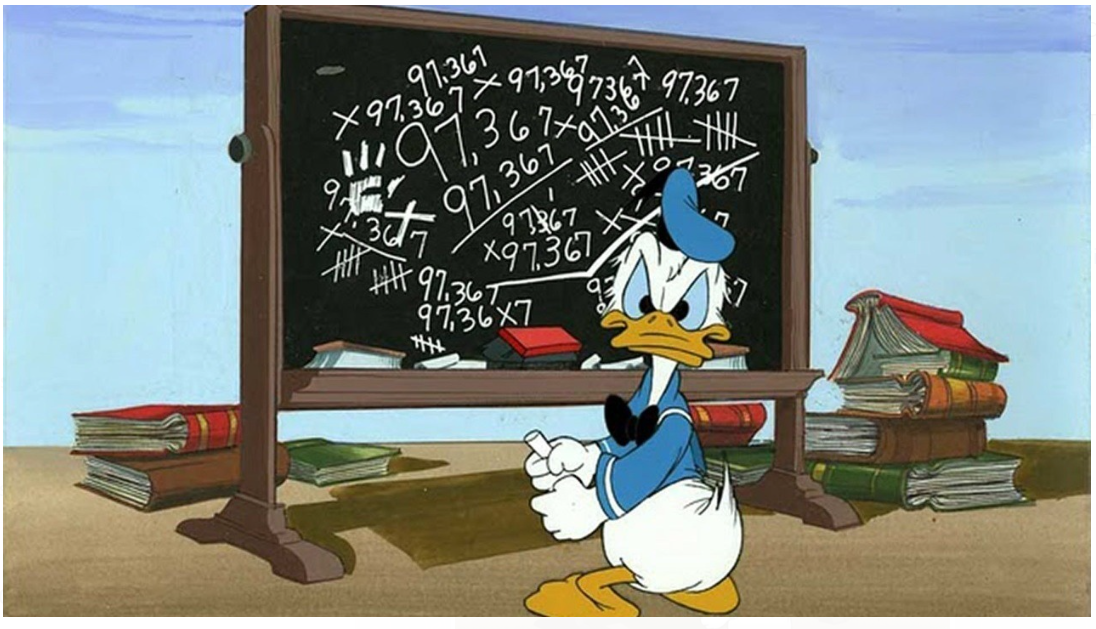 97,367
× 97,367
97367
97,367
× 97,367
97,367
×
97,36
97,367
97,367
9
× 367
97,367
× 97,367
97,367
97,36×7